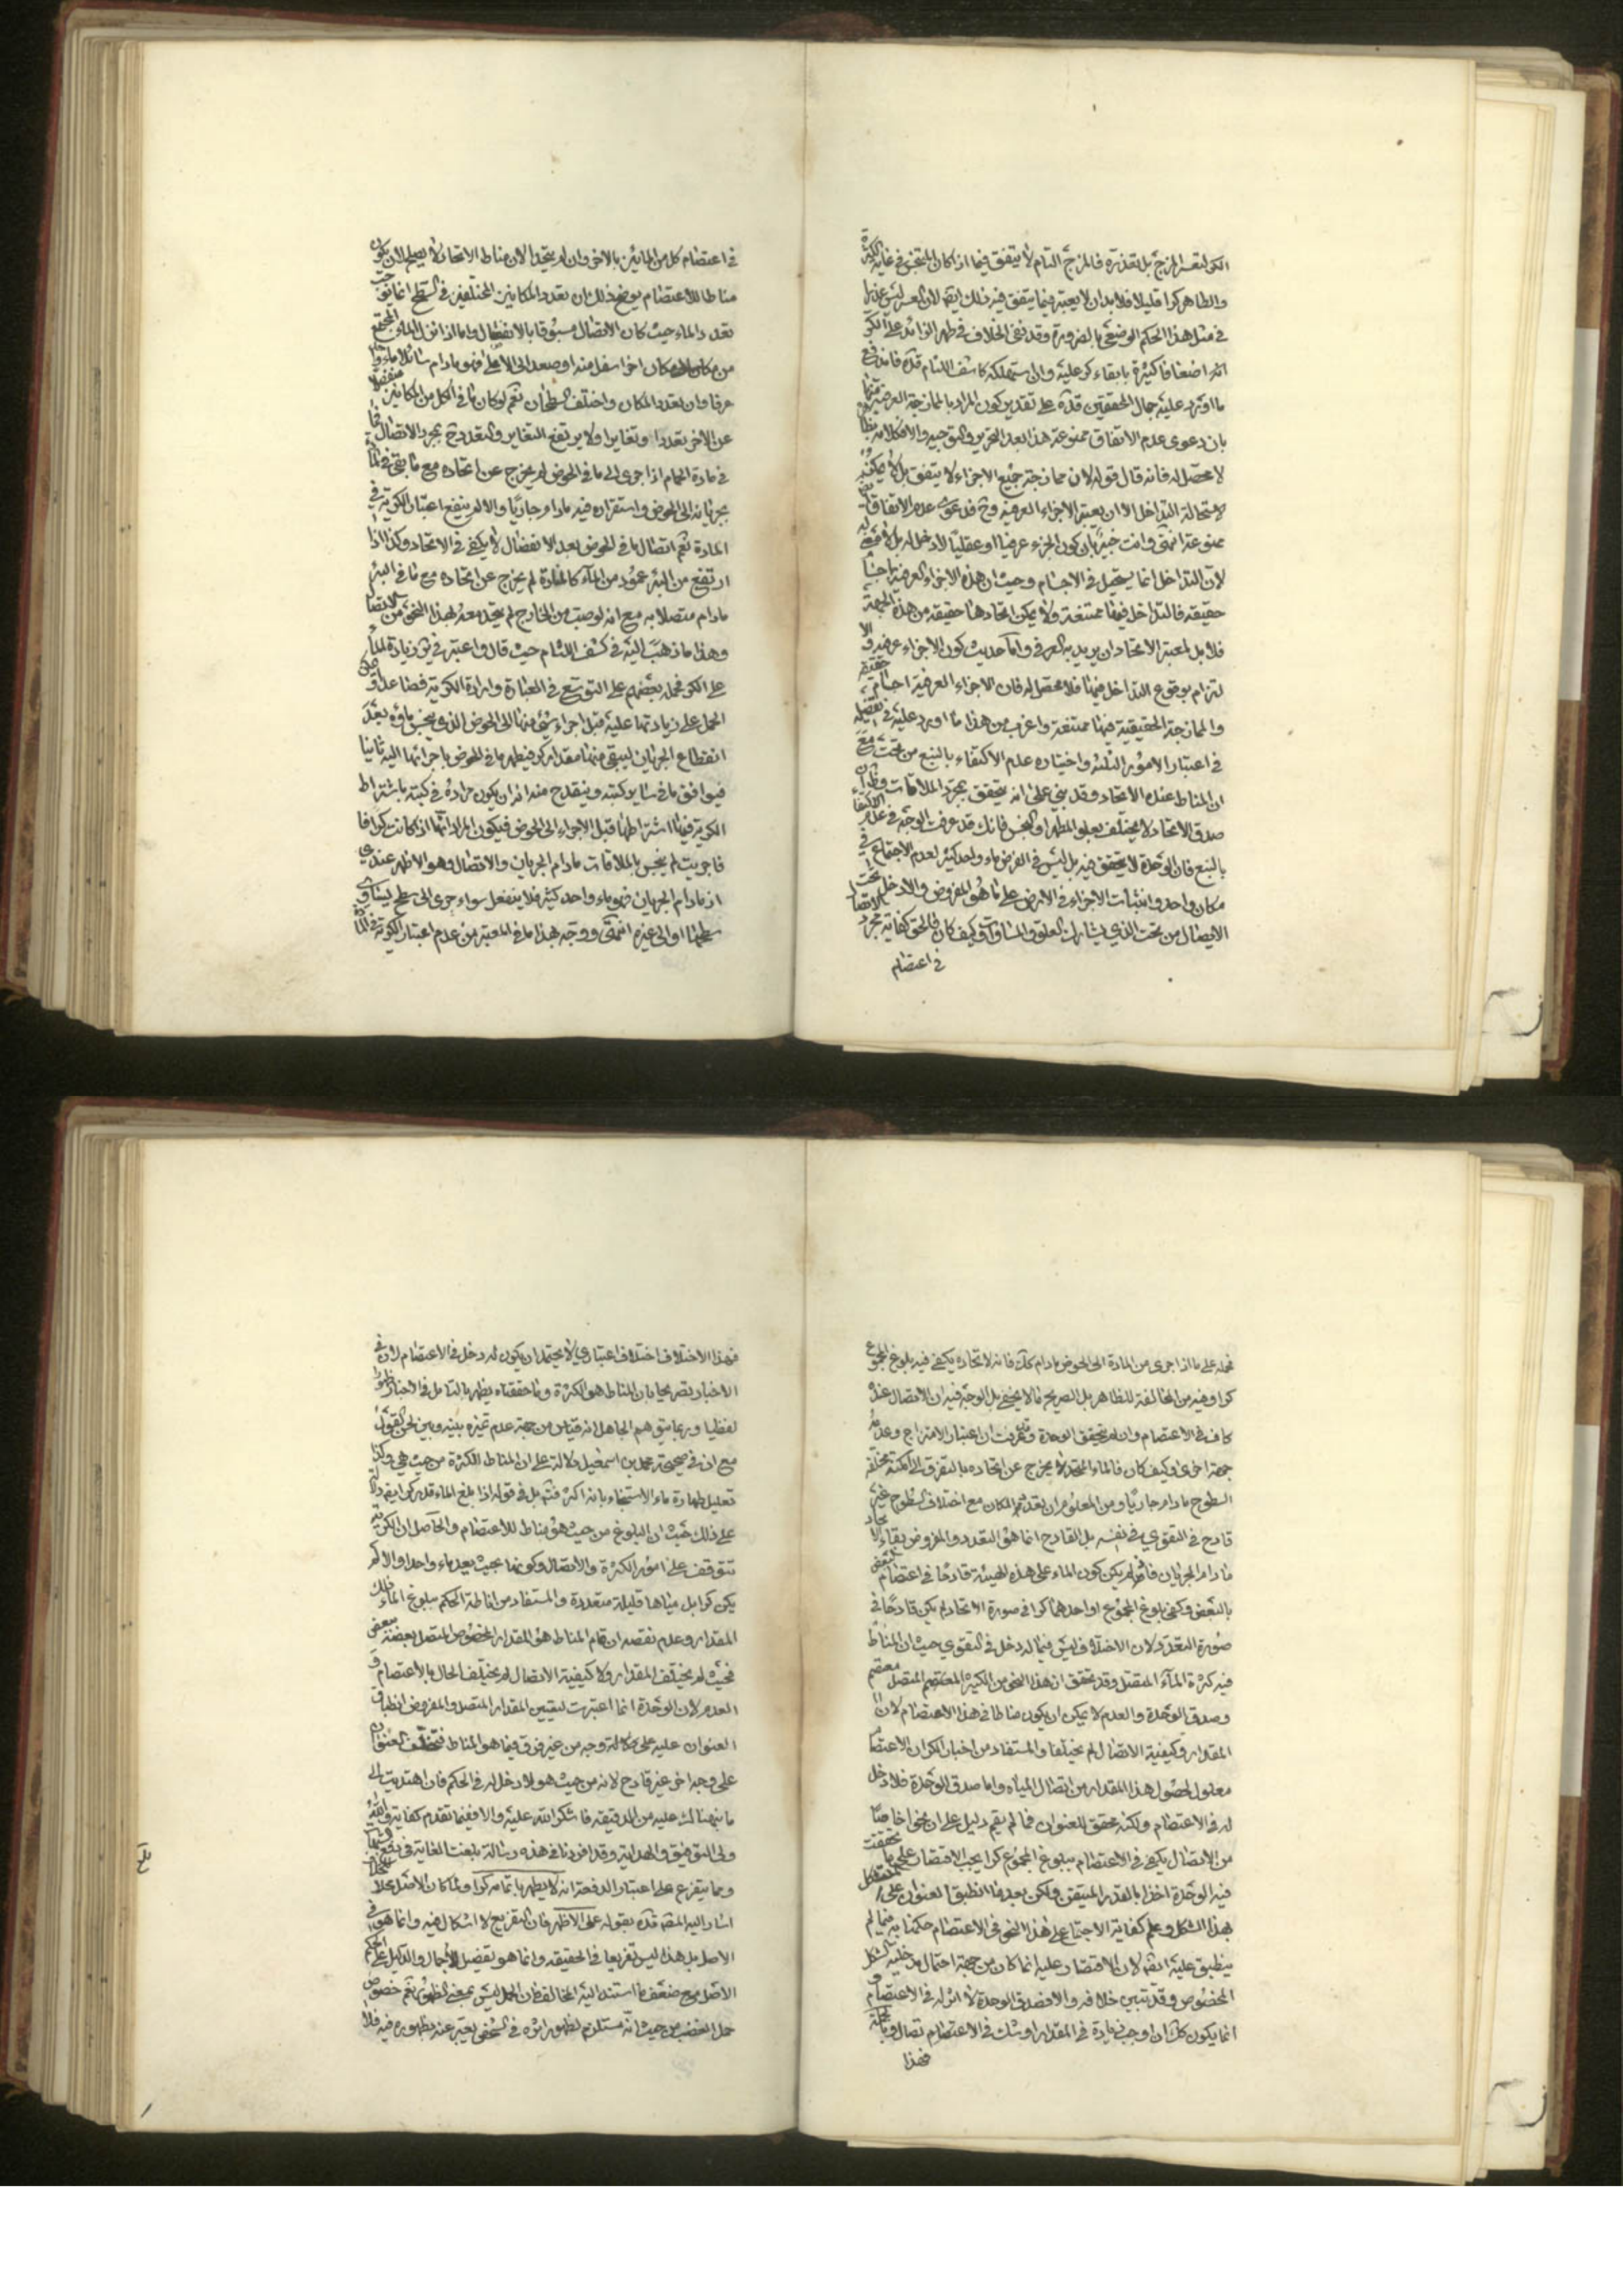 الكر لتعسر المزج بل تعذره فالمزج التام لا يتفق فيما اذا كان المتنجس في غاية الكثرة
والطاهر كرا قليلا فلا بد ان لا يعتبر فيما يتفق فيه ذلك ايضا لان العسر ليس عذرا
في مثل هذا الحكم الوضعي بالضرورة وقد نفى الخلاف في طهر الزائد على الكر
اضعافا كثيرة بالقاء كر عليه وان استهلكه كاشف اللثام قده فاندفع
ما اورد عليه جمال المحققين قده على تقدير كون المراد بالممازجة العرفية منها
بان دعوى عدم الاتفاق ممنوعة هذا بعد التحرير والتوجيه والا فكلامه
لا محصل له فانه قال قوله لان ممازجة جميع الاجزاء لا يتفق بل لا يمكن
لاستحالة التداخل الا ان يعتبر الاجزاء العرفية وح فدعوى عدم الاتفاق
ممنوعة انتهى وانت خبير بان كون الجزء عرفيا او عقليا لا دخل له بل
لان التداخل انما يستحيل في الاجسام وحيث ان هذه الاجزاء العرفية اجسام
حقيقة فالتداخل فيها ممتنعة ولا يمكن اتحادها حقيقة من هذه الجهة
فلا بد لمعتبر الاتحاد ان يريد به العرفي واما حديث كون الاجزاء عرفية و
لتزام بوقوع التداخل فيها فلا محصل له فان الاجزاء العرفية اجسام حقيقة
والممازجة الحقيقية فيها ممتنعة واغرب من هذا ما اورد عليه في تفصيله
في اعتبار الامور الثلثة واختياره عدم الاكتفاء بالنبع من تحت مع
ان المناط عنده الاتحاد وقد بنى على انه يتحقق بمجرد الملاقات
صدق الاتحاد لا يختلف بعلو المطهر او النجس فانك قد عرفت الوجه في عدم الاكتفاء
بالنبع فان الوحدة لا يتحقق فيه بل ليس في الفرض ماء واحد كثير لعدم الاجتماع في
مكان واحد وانبثاث الاجزاء في الارض على ما هو المفروض والا دخل تحت
الاتصال من تحت الذي يشارك العلو والمساواة وكيف كان فالحق كفاية مجرد الاتصال
في اعتصام
في اعتصام كل من المائين بالاخر وان لم يتحدا لان مناط الاتحاد لا يصلح لان يكون
مناطا للاعتصام يوضح ذلك ان تعدد المكانين المختلفين في السطح انما يوجب
تعدد الماء حيث كان الاتصال مسبوقا بالانفصال واما اذا نزل الماء المجتمع
من مكان الى مكان اخر اسفل منه او صعد الى الاعلى فهو ما دام سائلا ماء واحد
عرفا وان تعدد المكان واختلف السطحان نعم لو كان ما في كل من المكانين منفصلا
عن الاخر تعددا وتغايرا ولا يرتفع التغاير والتعدد ح بمجرد الاتصال فما
في مادة الحمام اذا جرى الى ما في الحوض لم يخرج عن اتحاده مع ما بقي في المادة
بجريانه الى الحوض واستقراره فيه ما دام جاريا والا لم ينفع اعتبار الكرية في
المادة نعم اتصال ما في الحوض بعد الانفصال لا يكفي في الاتحاد وكذا اذا
ارتفع من البئر عمود من الماء كالمنارة لم يخرج عن اتحاده مع ما في البئر
ما دام متصلا به مع انه لو صب من الخارج لم يتحد معه بهذا النحو من الاتصال
وهذا ما ذهب اليه في كشف اللثام حيث قال واعتبر في زيادة الماء
على الكر فحمله بعضهم على التوسع في العبارة وارادة الكرية فصاعدا و
الحمل على زيادتها عليه قبل اجراء شيء منها الى الحوض الذي ينجس ماؤه بعد
انقطاع الجريان ليبقى منها مقدار كر فيطهر ما في الحوض باجرائها اليه ثانيا
فيوافق ما في سائر كتبه وينقدح منه انه ان يكون مراده في كتبه باشتراط
الكرية فيها اشتراطها قبل الاجراء الى الحوض فيكون المراد انها اذا كانت كرا فما
فاجريت لم ينجس بالملاقات ما دام الجريان والاتصال وهو الاظهر عندي
اذ ما دام الجريان فهو ماء واحد كثير فلا ينفعل سواء جرى الى سطح يساوي
سطحها او الى غيره انتهى ووجه بهذا ما في المعتبر من عدم اعتبار الكرية في المادة
فحمله على ما اذا جرى من المادة الى الحوض ما دام كك فانه لاتحاده يكفي فيه بلوغ المجموع
كرا وفيه من المخالفة للظاهر بل الصريح ما لا يخفى بل الوجه فيه ان الاتصال عنده
كاف في الاعتصام وان لم يتحقق الوحدة وقد عرفت ان اعتبار الامتزاج وعدمه
جهة اخرى وكيف كان فالماء المتحد لا يخرج عن اتحاده بالتفرق الى امكنة مختلفة
السطوح ما دام جاريا ومن المعلوم ان تعدد المكان مع اختلاف السطوح غير
قادح في التقوي في نفسه بل القادح انما هو التعدد والمفروض بقاء الاتحاد
ما دام الجريان فاذا لم يكن كون الماء على هذه الهيئة قادحا في اعتصام البعض
بالبعض وكفى بلوغ المجموع او احدهما كرا في صورة الاتحاد لم يكن قادحا في
صورة التعدد لان الاختلاف ليس فيما له دخل في التقوي حيث ان المناط
فيه كثرة الماء المتصل وقد تحقق ان هذا النحو من الكثير المعتصم المتصل معتصم
وصدق الوحدة والعدم لا يمكن ان يكون مناطا في هذا الاعتصام لان
المقدار وكيفية الاتصال لم يختلفا والمستفاد من اخبار الكر ان الاعتصام
معلول لحصول هذا المقدار من اتصال المياه واما صدق الوحدة فلا دخل
له في الاعتصام ولكنه محقق للعنوان فما لم يقم دليل على ان نحوا خاصا
من الاتصال يكفي في الاعتصام ببلوغ المجموع كرا يجب الاقتصار على ما تحققت
فيه الوحدة اخذا بالقدر المتيقن ولكن بعد ما انطبق العنوان على المتشكل
بهذا الشكل وعلم كفاية الاجتماع على هذا النحو في الاعتصام حكمنا به فيما لم
ينطبق عليه ايضا لان الاقتصار عليه انما كان من جهة احتمال مدخلية الشكل
المخصوص وقد تبين خلافه والا فصدق الوحدة لا اثر له في الاعتصام و
انما يكون كك ان اوجب زيادة في المقدار او شك في الاعتصام وبالجملة
فهذا
فهذا الاختلاف اختلاف اعتباري لا يحتمل ان يكون له دخل في الاعتصام لان في
الاخبار تصريحا بان المناط هو الكثرة وما حققناه يظهر بالتامل في الاخبار ظهورا
لفظيا وربما يتوهم الجاهل انه قياس من جهة عدم تميزه بينه وبين لحن القول
مع ان في صحيحة محمد بن اسمعيل دلالة على ان المناط الكثرة من حيث هي وكذا
تعليل طهارة ماء الاستنجاء بانه اكثر فتنبه بل في قوله اذا بلغ الماء قدر كر ايضا دلالة
على ذلك حيث ان البلوغ من حيث هو مناط للاعتصام والحاصل ان الكرية
تتوقف على امور الكثرة والاتصال وكونها بحيث يعد ماء واحدا والا لم
يكن كرا بل مياها قليلة متعددة والمستفاد من اناطة الحكم ببلوغ الماء ذلك
المقدار وعدم نقصه ان تمام المناط هو المقدار المخصوص المتصل بعضه ببعض
فحيث لم يختلف المقدار ولا كيفية الاتصال لم يختلف الحال بالاعتصام و
العدم لان الوحدة انما اعتبرت لتعيين المقدار المتصل والمفروض انطباق
العنوان عليه على وجه من غير فرق فيما هو المناط فتخلف العنوان
على وجه اخر غير قادح لانه من حيث هو لا دخل له في الحكم فان اهتديت الى
ما نبهناك عليه من الدقيقة فاشكر الله عليه والا فغيما تقدم كفاية والله
ولي التوفيق والهداية وقد افردنا في هذه رسالة بلغت الغاية في
ومما يتفرع على اعتبار الدفعة انه لا يطهر باتمامه كرا ولما كان الاصل محلا
اشار اليه المصنف قده بقوله على الاظهر فان التفريع لا اشكال فيه وانما هو في
الاصل بل هذا ليس تفريعا في الحقيقة وانما هو تفصيل الاجمال والدليل على الحكم
الاصل مع ضعف ما استند اليه المخالف فان الحمل ليس بمعنى الظهور نعم خصوص
حمل الغضب من حيث انه مستلزم لظهور اثره في الشخص يعبر عنه بظهوره فيه فلا
بلغ